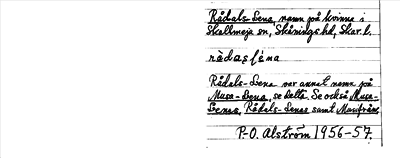 Rådals-Lena, namn på kvinna i
Skallmeja sn, Skånings hd, Skar. l.
rådasļéna
Rådals-Lena var annat namn på
Musa-Lena, se detta. Se också Musa-
Lenas, Rådals-Lenas samt Manfrån.
P-O. Alström 1956-57.